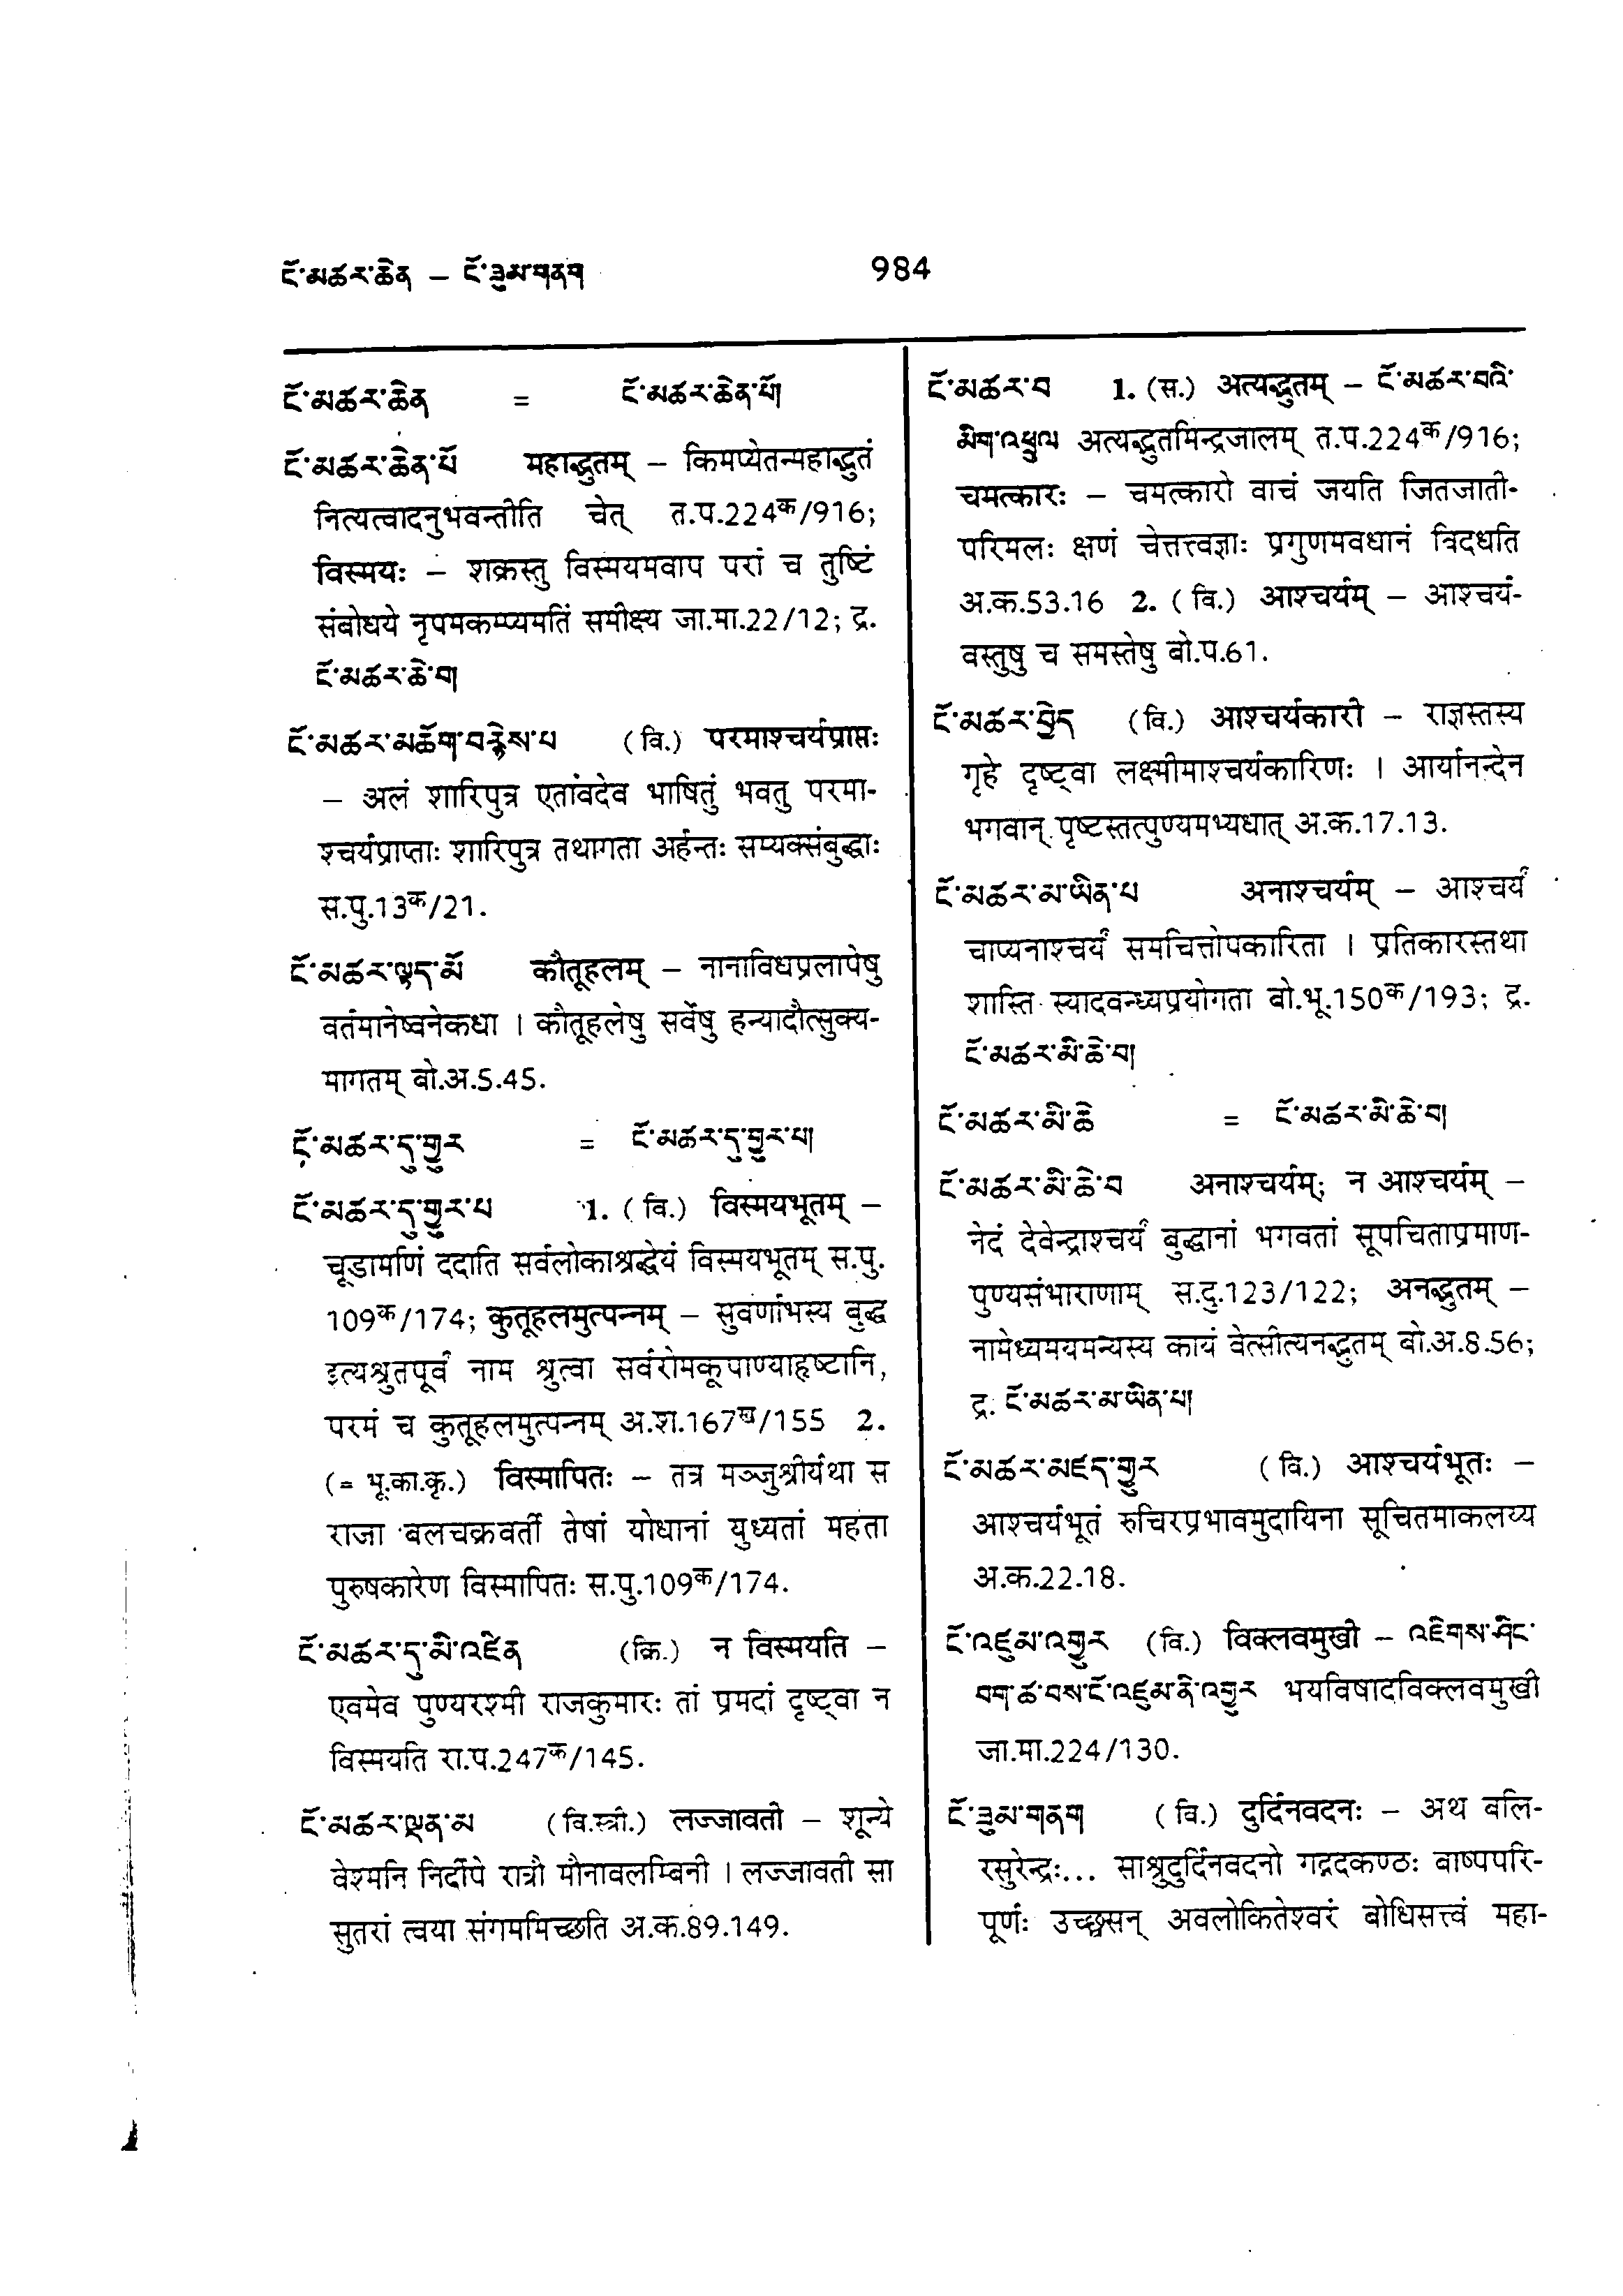 ངོ་མཚར་ཆེན – ངོ་ཟུམ་གནག
984
ངོ་མཚར་ཆེན = ངོ་མཚར་ཆེན་པོ།
ངོ་མཚར་ཆེན་པོ महाद्भुतम् – किमप्येतन्महाद्भुतं
नित्यत्वादनुभवन्तीति चेत् त.प.224क/916;
विस्मयः – शक्रस्तु विस्मयमवाप परां च तुष्टिं
संबोधये नृपमकम्प्यमतिं समीक्ष्य जा.मा.22/12; द्र.
ངོ་མཚར་ཆེ་བ།
ངོ་མཚར་མཆོག་བརྙེས་པ (वि.) परमाश्चर्यप्राप्तः
– अलं शारिपुत्र एतावदेव भाषितुं भवतु परमा-
श्चर्यप्राप्ताः शारिपुत्र तथागता अर्हन्तः सम्यक्संबुद्धाः
स.पु.13क/21.
ངོ་མཚར་ལྟད་མོ कौतूहलम् – नानाविधप्रलापेषु
वर्तमानेष्वनेकधा । कौतूहलेषु सर्वेषु हन्यादौत्सुक्य-
मागतम् बो.अ.5.45.
ངོ་མཚར་དུ་གྱུར = ངོ་མཚར་དུ་གྱུར་པ།
ངོ་མཚར་དུ་གྱུར་པ 1. (वि.) विस्मयभूतम् –
चूडामणिं ददाति सर्वलोकाश्रद्धेयं विस्मयभूतम् स.पु.
109क/174; कुतूहलमुत्पन्नम् – सुवर्णाभस्य बुद्ध
इत्यश्रुतपूर्वं नाम श्रुत्वा सर्वरोमकूपाण्याहृष्टानि,
परमं च कुतूहलमुत्पन्नम् अ.श.167ख/155 2.
(= भू.का.कृ.) विस्मापितः – तत्र मञ्जुश्रीर्यथा स
राजा बलचक्रवर्ती तेषां योधानां युध्यतां महता
पुरुषकारेण विस्मापितः स.पु.109क/174.
ངོ་མཚར་དུ་མི་འཛིན (क्रि.) न विस्मयति –
एवमेव पुण्यरश्मी राजकुमारः तां प्रमदां दृष्ट्वा न
विस्मयति रा.प.247क/145.
ངོ་མཚར་ལྡན་མ (वि.स्त्री.) लज्जावती – शून्ये
वेश्मनि निर्दीपे रात्रौ मौनावलम्बिनी । लज्जावती सा
सुतरां त्वया संगममिच्छति अ.क.89.149.
ངོ་མཚར་བ 1. (स.) अत्यद्भुतम् – ངོ་མཚར་བའི་
མིག་འཕྲུལ अत्यद्भुतमिन्द्रजालम् त.प.224क/916;
चमत्कारः – चमत्कारो वाचं जयति जितजाती-
परिमलः क्षणं चेत्तत्त्वज्ञाः प्रगुणमवधानं विदधति
अ.क.53.16 2. (वि.) आश्चर्यम् – आश्चर्य-
वस्तुषु च समस्तेषु बो.प.61.
ངོ་མཚར་བྱེད (वि.) आश्चर्यकारी – राज्ञस्तस्य
गृहे दृष्ट्वा लक्ष्मीमाश्चर्यकारिणः । आर्यानन्देन
भगवान् पृष्टस्तत्पुण्यमभ्यधात् अ.क.17.13.
ངོ་མཚར་མ་ཡིན་པ अनाश्चर्यम् – आश्चर्यं
चाप्यनाश्चर्यं समचित्तोपकारिता । प्रतिकारस्तथा
शास्ति स्यादवन्ध्यप्रयोगता बो.भू.150क/193; द्र.
ངོ་མཚར་མི་ཆེ་བ།
ངོ་མཚར་མི་ཆེ = ངོ་མཚར་མི་ཆེ་བ།
ངོ་མཚར་མི་ཆེ་བ अनाश्चर्यम्; न आश्चर्यम् –
नेदं देवेन्द्राश्चर्यं बुद्धानां भगवतां सूपचिताप्रमाण-
पुण्यसंभाराणाम् स.दु.123/122; अनद्भुतम् –
नामेध्यमयमन्यस्य कायं वेत्सीत्यनद्भुतम् बो.अ.8.56;
द्र. ངོ་མཚར་མ་ཡིན་པ།
ངོ་མཚར་མཛད་གྱུར (वि.) आश्चर्यभूतः –
आश्चर्यभूतं रुचिरप्रभावमुदायिना सूचितमाकलय्य
अ.क.22.18.
ངོ་འཛུམ་འགྱུར (वि.) विक्लवमुखी – འཇིགས་ཤིང་
བག་ཚ་བས་ངོ་འཛུམ་ནི་འགྱུར भयविषादविक्लवमुखी
जा.मा.224/130.
ངོ་ཟུམ་གནག (वि.) दुर्दिनवदनः – अथ बलि-
रसुरेन्द्रः... साश्रुदुर्दिनवदनो गद्गदकण्ठः बाष्पपरि-
पूर्णः उच्छ्वसन् अवलोकितेश्वरं बोधिसत्त्वं महा-